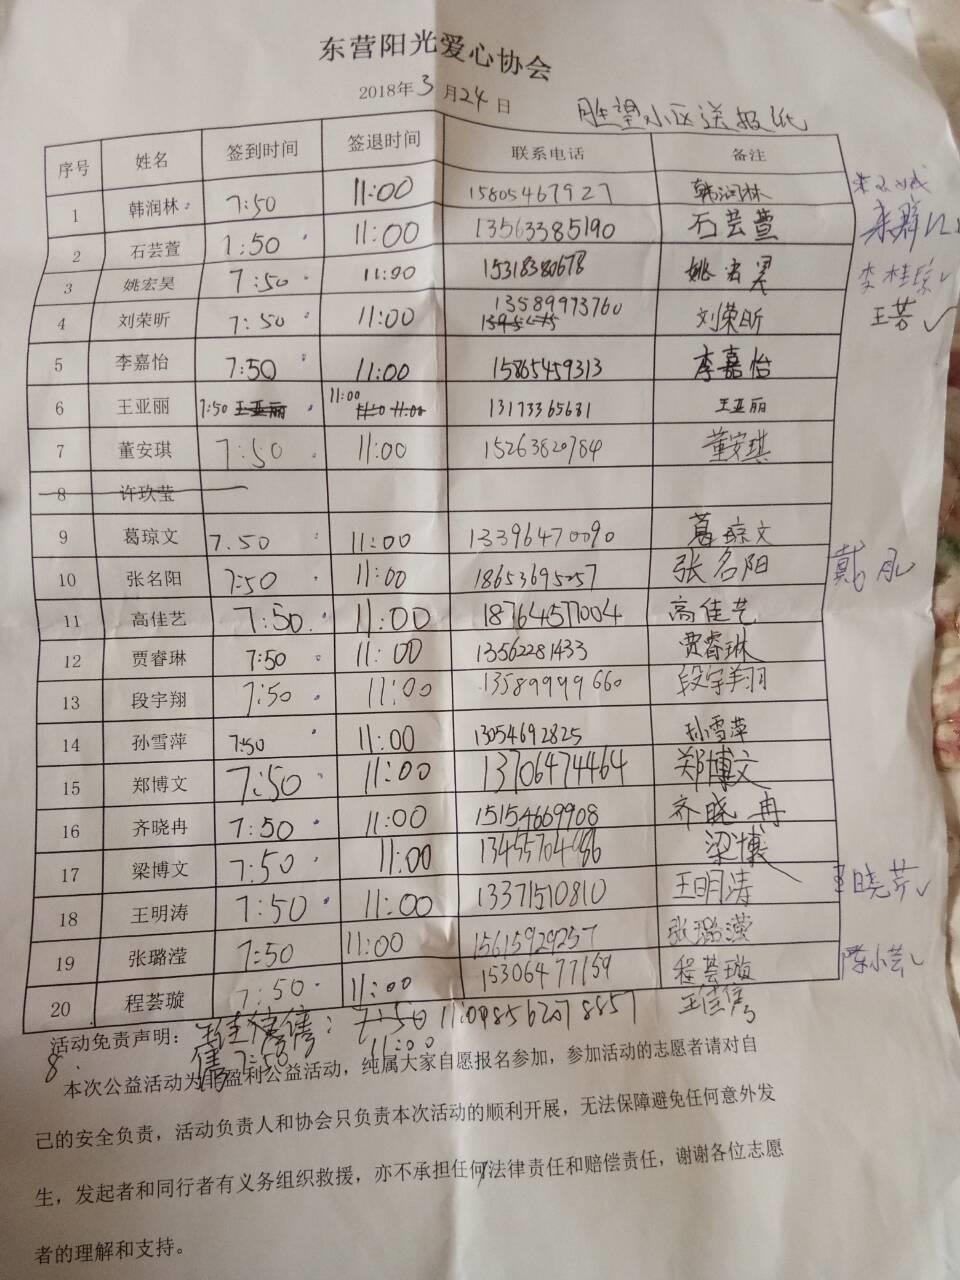 东营阳光爱心协会
2018年3月24日
胜望小区送报纸
序号 姓名 签到时间 签退时间 联系电话 备注
1 韩润林 7:50 11:00 15805467927 韩润林
2 石芸萱 7:50 11:00 13563385190 石芸萱
3 姚宏昊 7:50 11:00 15318380678 姚宏昊 李桂琼✓
4 刘荣昕 7:50 11:00 13589973760 刘荣昕 王芳✓
5 李嘉怡 7:50 11:00 15865459313 李嘉怡
6 王亚丽 7:50 王亚丽 11:00 11:00 13173365631 王亚丽
7 董安琪 7:50 11:00 15263820784 董安琪
8 许玖莹
9 葛琼文 7.50 11:00 13396470090 葛琼文
10 张名阳 7:50 11:00 18653695257 张名阳 戴
11 高佳艺 7:50 11:00 18764577004 高佳艺
12 贾睿琳 7:50 11:00 13562281433 贾睿琳
13 段宇翔 7:50 11:00 13589999660 段宇翔
14 孙雪萍 7:50 11:00 13054692825 孙雪萍
15 郑博文 7:50 11:00 13706474464 郑博文
16 齐晓冉 7:50 11:00 15154669908 齐晓冉
17 梁博文 7:50 11:00 梁博文
18 王明涛 7:50 11:00 13371510810 王明涛 晓芳✓
19 张璐滢 7:50 11:00 15615929257 张璐滢
20 程荟璇 7:50 11:00 15306477159 程荟璇 陈小芸✓
活动免责声明：
8. 7:50 11:00
本次公益活动为非盈利公益活动，纯属大家自愿报名参加，参加活动的志愿者请对自
己的安全负责，活动负责人和协会只负责本次活动的顺利开展，无法保障避免任何意外发
生，发起者和同行者有义务组织救援，亦不承担任何法律责任和赔偿责任，谢谢各位志愿
者的理解和支持。